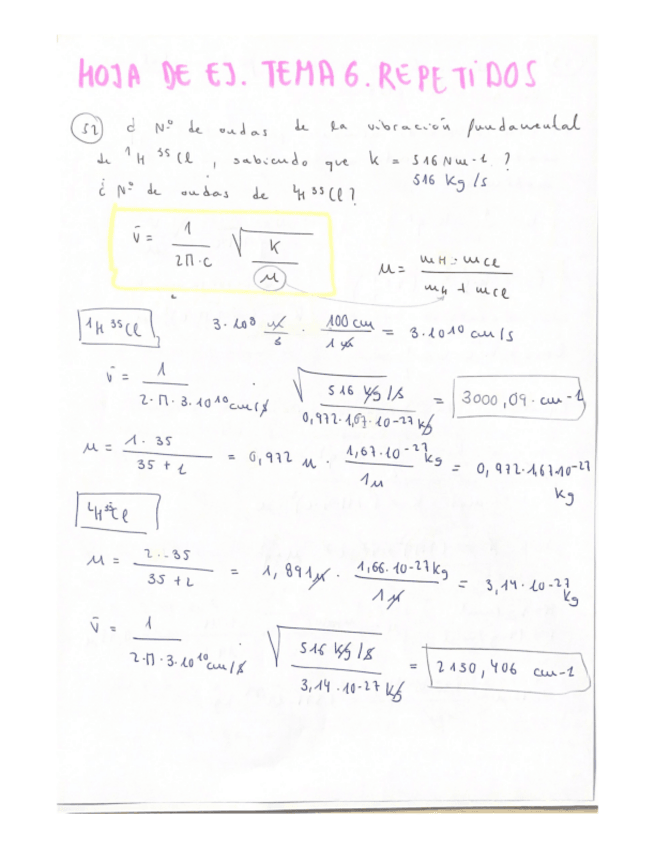 HOJA DE EJ. TEMA 6. REPETIDOS
52 ¿ Nº de ondas de la vibración fundamental
de ¹H ³⁵Cl, sabiendo que k = 516 Nm-1 ?
516 Kg/s
¿ Nº de ondas de ²H ³⁵Cl ?
ν̄ = 1 / 2π·c √ K / μ
μ = mH · mCl / mH + mCl
¹H ³⁵Cl
3·10⁸ m/s · 100 cm / 1 m = 3·10¹⁰ cm/s
ν̄ = 1 / 2·π·3·10¹⁰ cm/s · √ 516 Kg/s / 0,972·1,67·10-27 kg = 3000,09 · cm-1
μ = 1·35 / 35+1 = 0,972 μ · 1,67·10-27 kg / 1μ = 0,972·1,67·10-27 kg
²H ³⁵Cl
μ = 2·35 / 35+2 = 1,891 μ · 1,66·10-27 kg / 1 μ = 3,14·10-27 kg
ν̄ = 1 / 2·π·3·10¹⁰ cm/s · √ 516 Kg/s / 3,14·10-27 kg = 2150,406 cm-1